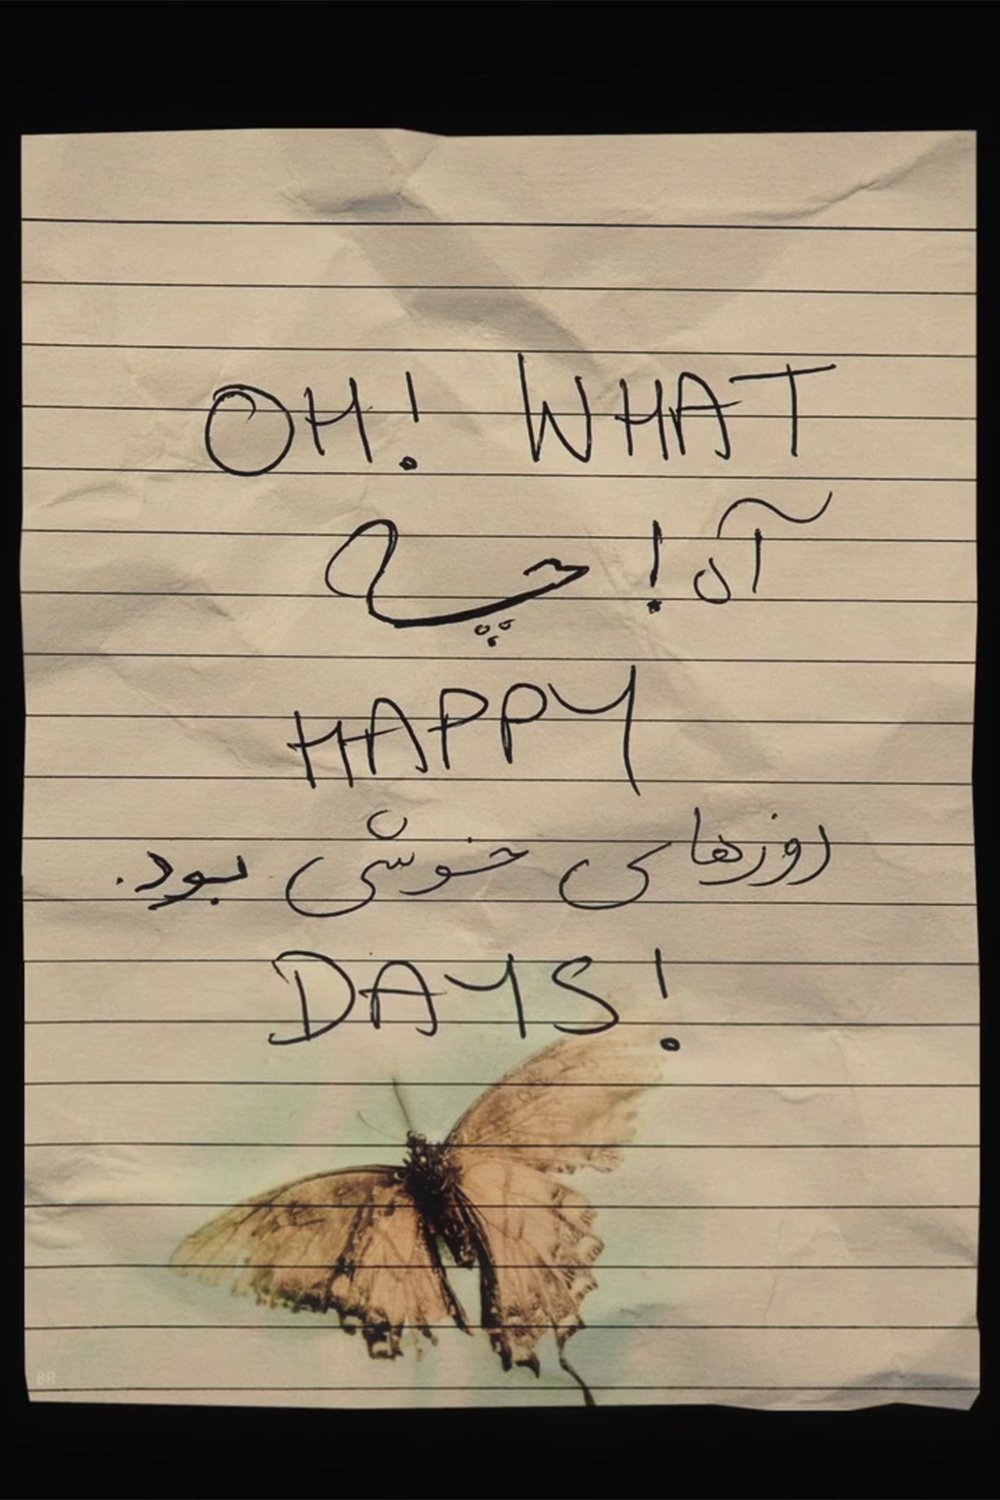 OH! WHAT
آه! چه
HAPPY
روزهای خوشی بود.
DAYS!
BR